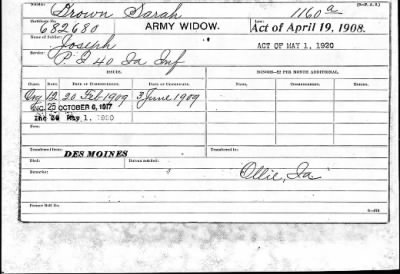 Name: Brown Sarah 1160 a
Certificate No. 682680 ARMY WIDOW. Act of April 19, 1908.
Name of Soldier: Joseph ACT OF MAY 1, 1920
Service: P E 40 Ia Inf
ISSUE. MINORS—$2 PER MONTH ADDITIONAL.
CLASS. RATE. DATE OF COMMENCEMENT. DATE OF CERTIFICATE. NAME. COMMENCEMENT.
Org 12 20 Feb 1909 3 June 1909
INC. 25 OCTOBER 6, 1917
Inc 30 May 1, 1920
From Transferred to
DES MOINES
Died
Remarks: Ollie, Ia
Former Roll No.